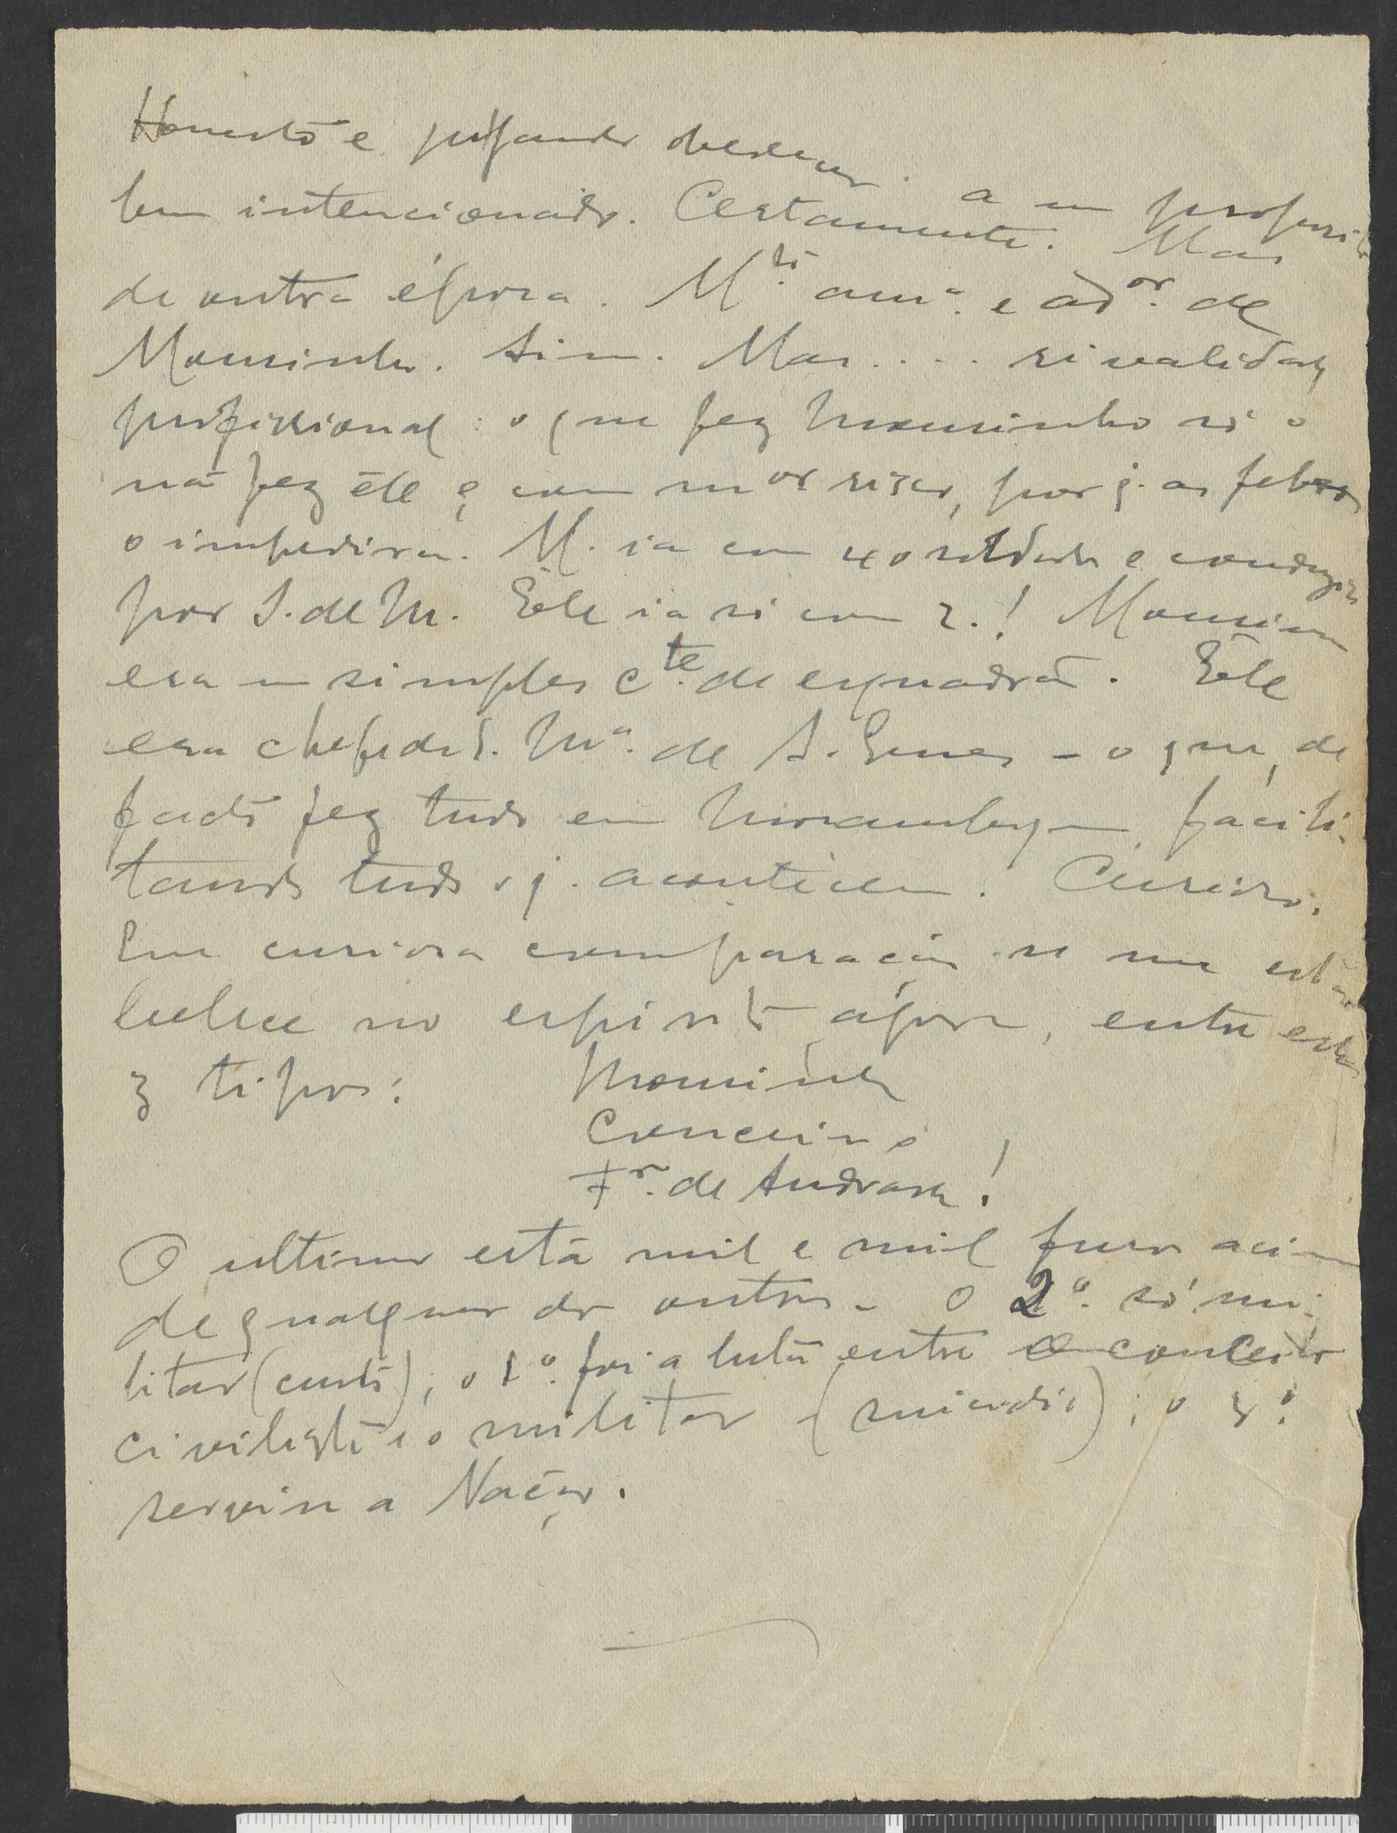 Honesto e julgando obedecer a um proposito
bem intencionado. Certamente. Mas
de outra época. Mto. amo. e ador. de
Mousinho. Sim. Mas .... rivalidade
profissional: o que fez Mousinho só o
nã fez êle e com mor risco, por q. as febres
o impediram. M. ia com 40 soldados e conduzido
por S. de M. Êle ia só com 2.! Mousinho
era um simples cte. de esquadrã. Êle
era chefe de S. Ma. de A. Enes - o que, de
facto fez tudo em Moçambique, facili-
tando tudo o q. aconteceu. Curioso.
Em curiosa comparação se me esta-
belece no espirito, agora, entre estes
3 tipos: Mousinho
Couceiro
Fr. de Andrade!
O ultimo está mil e mil furos acima
de qualquer dos outros. O 2º. só mi-
litar (culto); o 1º. foi a luta entre o conceito
civilista e o militar (); o 3º.
servir a Nação.